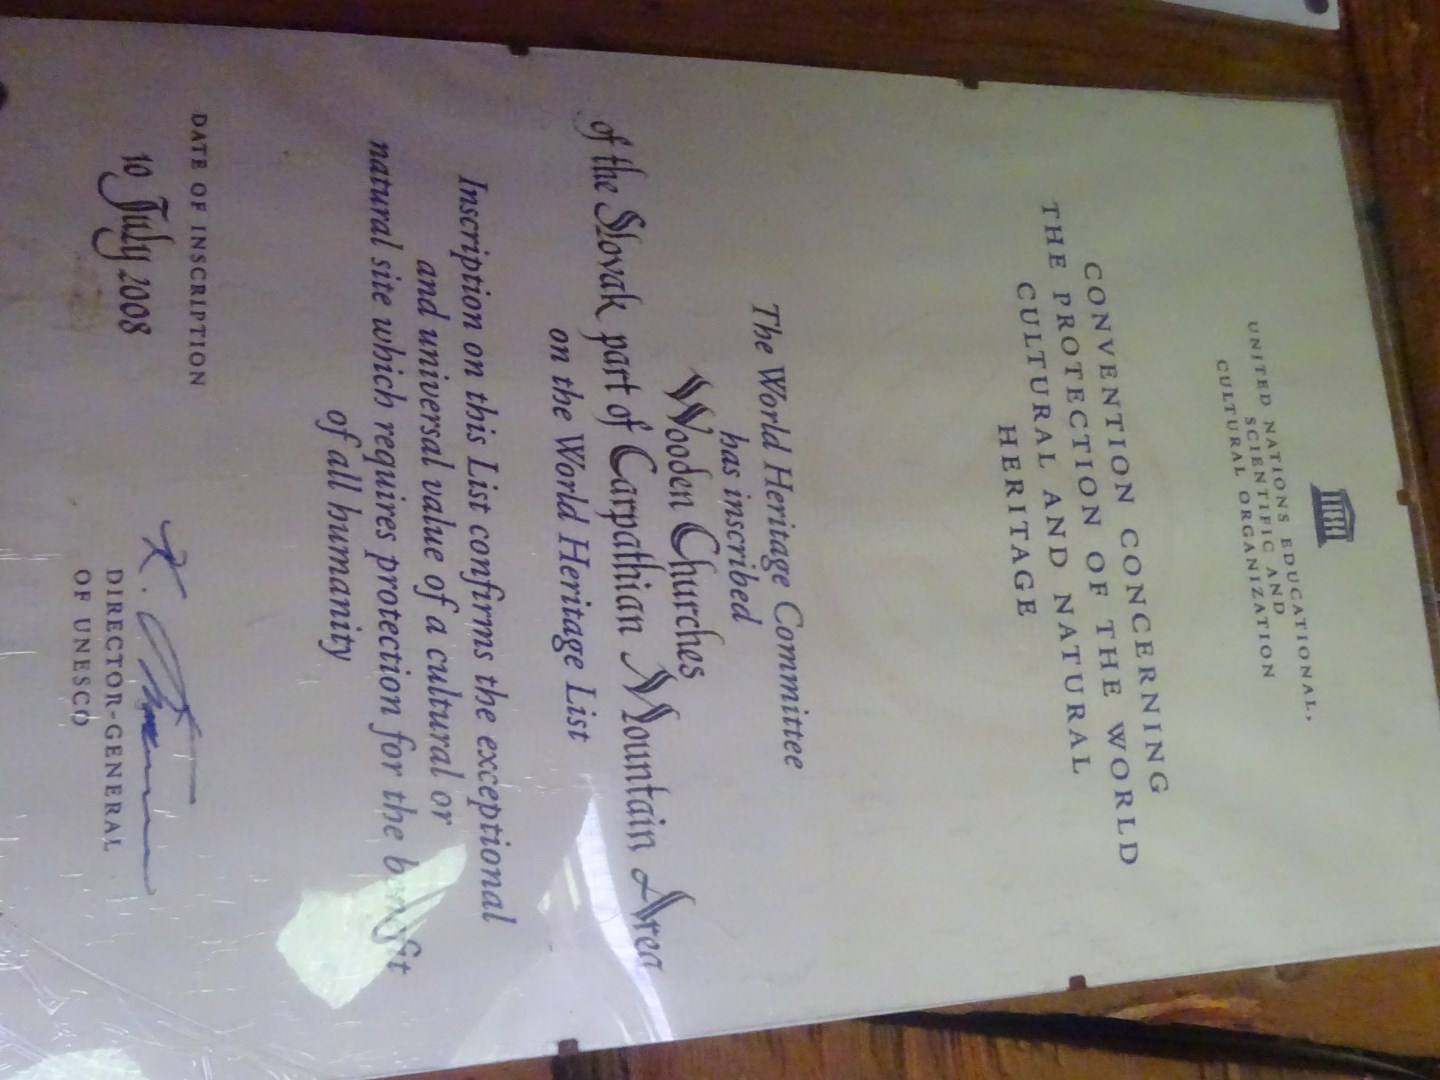 UNITED NATIONS EDUCATIONAL,
SCIENTIFIC AND
CULTURAL ORGANIZATION
CONVENTION CONCERNING
THE PROTECTION OF THE WORLD
CULTURAL AND NATURAL
HERITAGE
The World Heritage Committee
has inscribed
Wooden Churches
of the Slovak part of Carpathian Mountain Area
on the World Heritage List
Inscription on this List confirms the exceptional
and universal value of a cultural or
natural site which requires protection for the benefit
of all humanity
DATE OF INSCRIPTION
10 July 2008
DIRECTOR-GENERAL
OF UNESCO